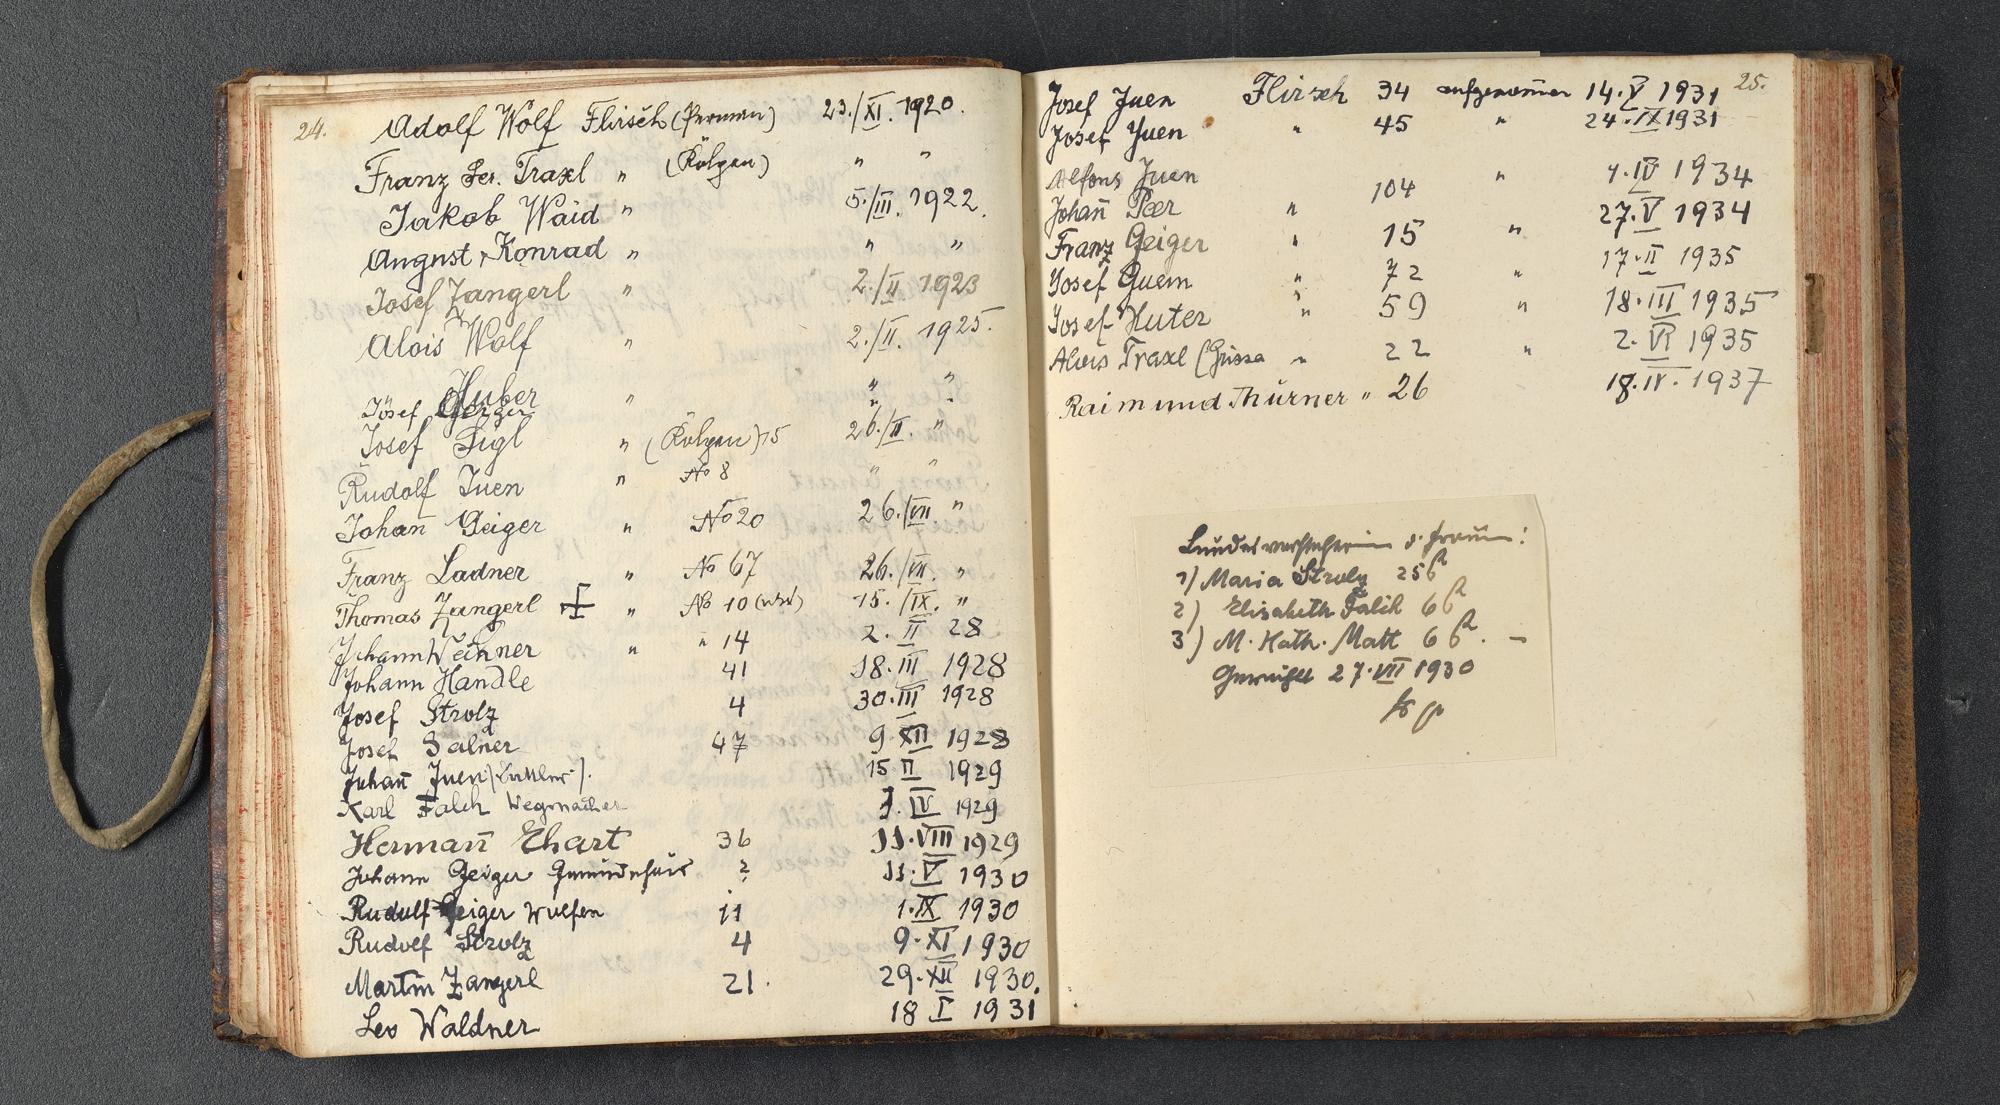 24.
Adolf Wolf Flirsch (Perman) 23./XI. 1920.
Franz Ser. Traxl " (Rölgen) " "
Jakob Waid " 5./III. 1922.
August Konrad " " "
Josef Zangerl " 2./II 1923
Alois Wolf " 2./II. 1925.
Huber " " "
Josef Geiger "
Josef Sigl " (Rölgen) 75 26./II. "
Rudolf Juen " No 8 " "
Johan̄ Geiger " No 20 26./VII "
Franz Ladner " No 67 26./VII. "
Thomas Zangerl " No 10 15./IX. "
Johann Wechner " " 14 2. II 28
Johann Handle 41 18.III 1928
Josef Strolz 4 30.III 1928
Josef Salner 47 9.XII 1928
Johan̄ Juen 15 II 1929
Karl Falch Wegmacher 1.IV 1929
Herman̄ Ehart 36 11.VIII 1929
Johann Geiger Gemeindehaus ? 11.V 1930
Rudolf Geiger Wulfen 11 1.IX 1930
Rudolf Strolz 4 9.XI 1930
Martin Zangerl 21. 29.XII 1930.
Leo Waldner 18 I 1931
25.
Josef Juen Flirsch 34 aufgenom̄en 14.V 1931
Josef Juen " 45 " 24.IX 1931
Alfons Juen 104 " 1.IV 1934
Johan̄ Peer " 27.V 1934
Franz Geiger " 15 " 17.II 1935
Josef Quem " 72 " 18.III 1935
Josef Huter " 59 " 2.VI 1935
Alois Traxl (Grissa " 22 " 18.IV.1937
Raimund Thurner " 26
Bundesvorsteherin d. Frauen:
1) Maria Strolz 256
2) Elisabeth Falch 66
3) M. Kath. Matt 66. –
Gewählt 27.VII 1930